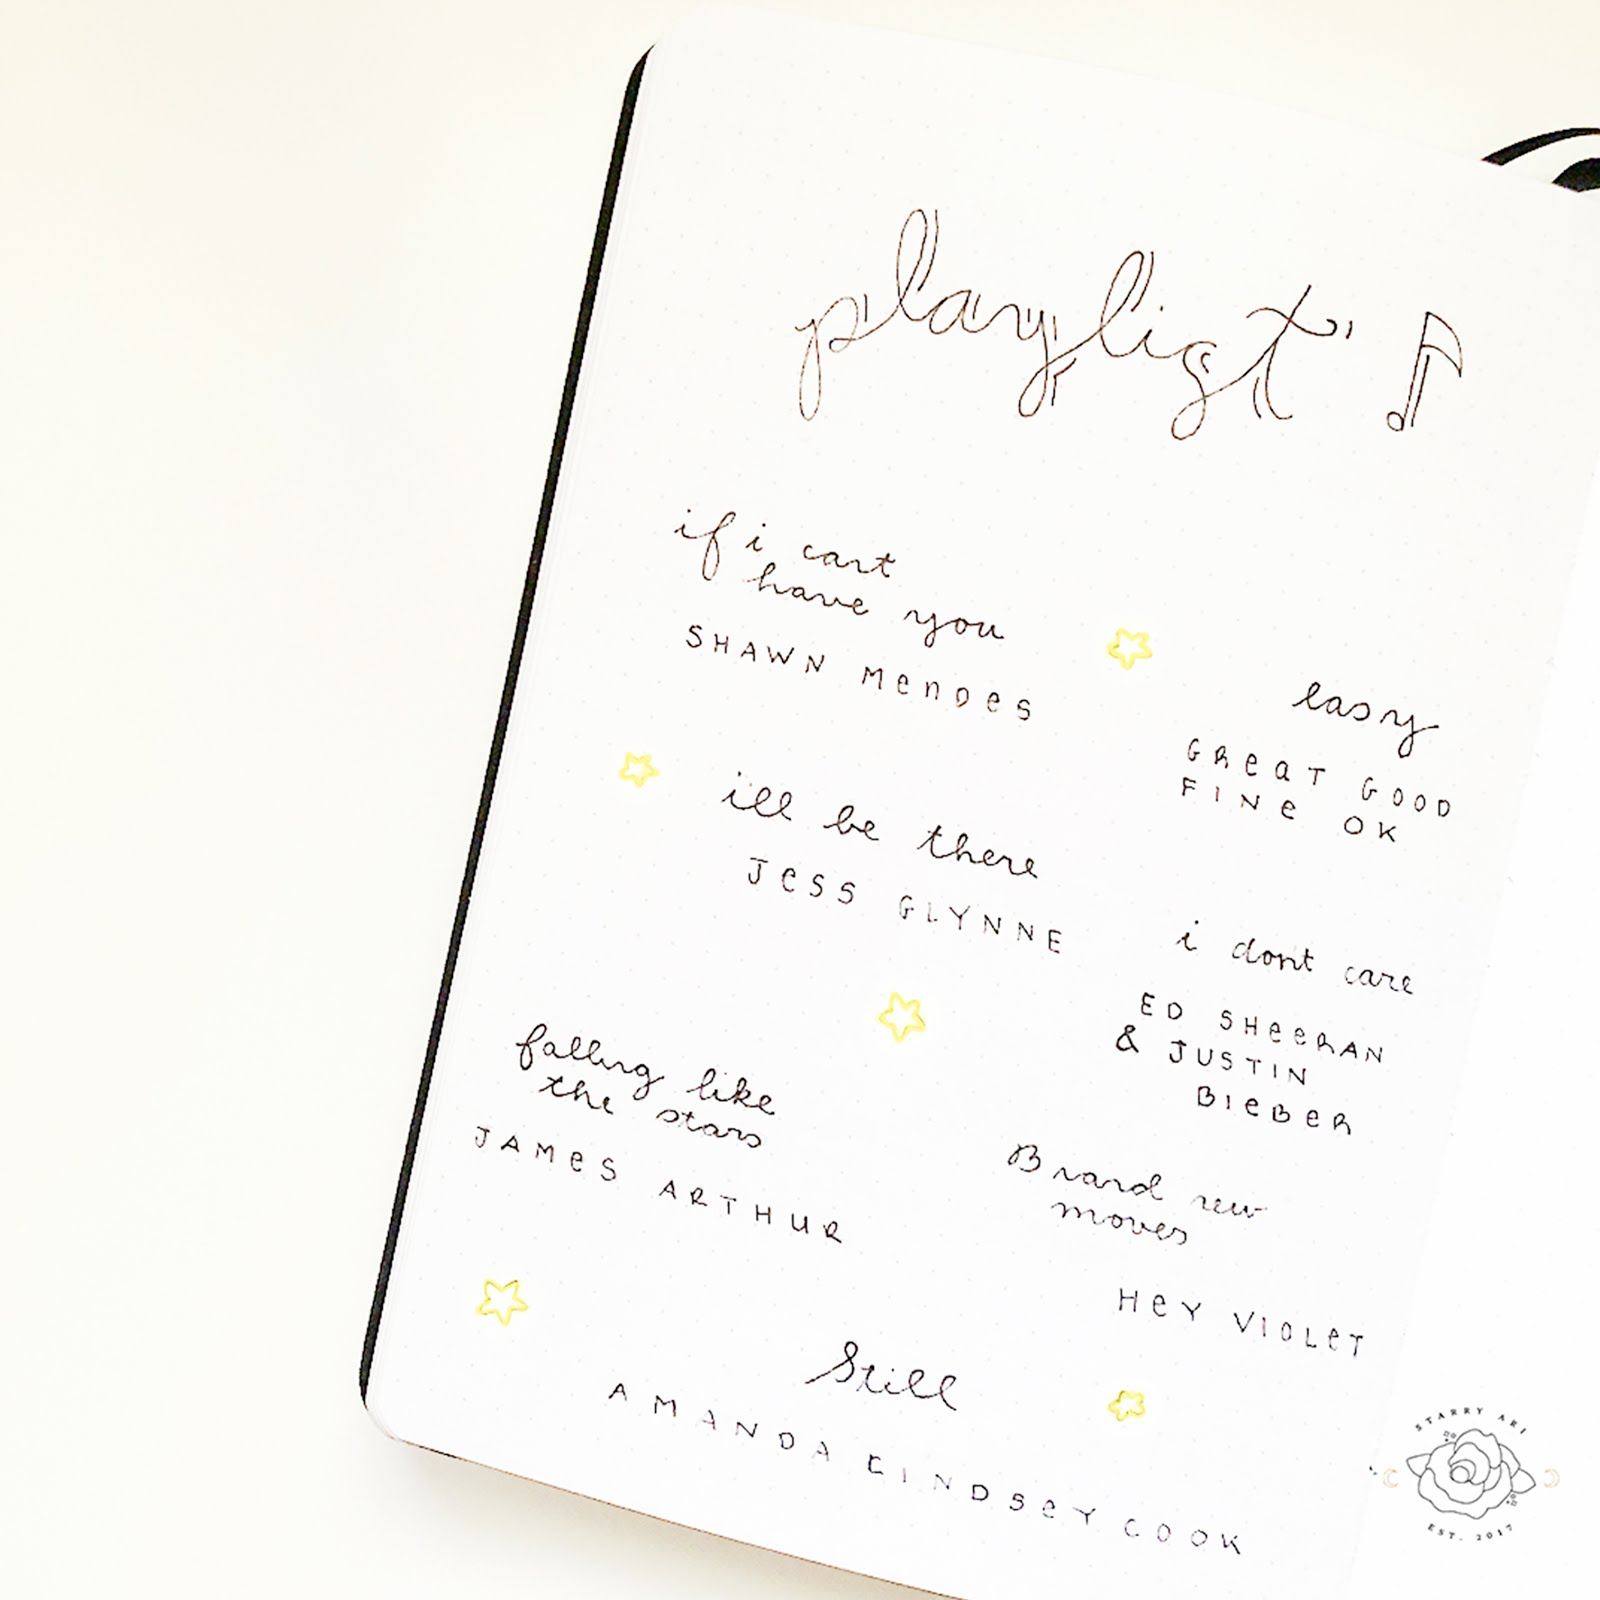 playlist
if i cant
have you
SHAWN MENDES
easy
GREAT GOOD
FINE OK
ill be there
JESS GLYNNE
i dont care
ED SHEERAN
& JUSTIN
BIEBER
falling like
the stars
JAMES ARTHUR
Brand new
moves
HEY VIOLET
Still
AMANDA LINDSEY COOK
STARRY ARI
EST. 2017